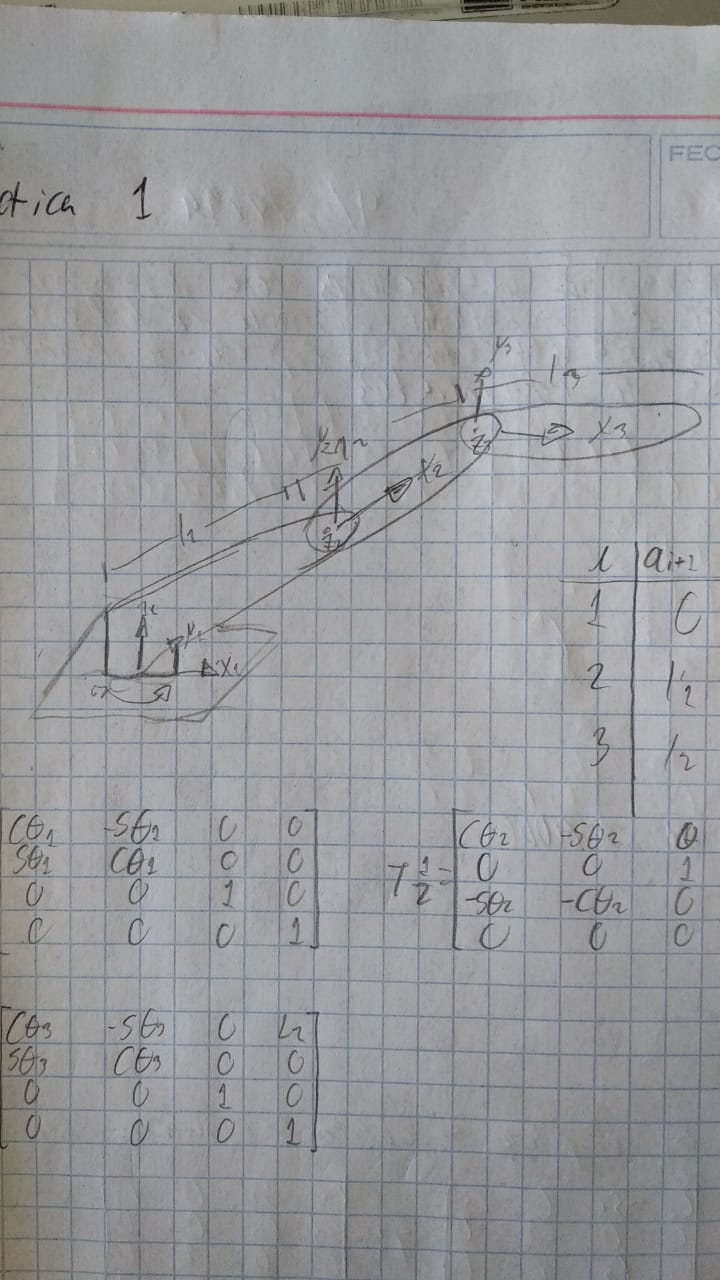 FEC
ctica 1
l3
Y3
X3
Z3
Y2
X2
l2
Y1
X1
i ai+1
1 0
2 l2
3 l2
Cθ1 -Sθ1 0 0
Sθ1 Cθ1 0 0
0 0 1 0
0 0 0 1
T 1/2 =
Cθ2 -Sθ2 0
0 0 1
-Sθ2 -Cθ2 0
0 0 0
Cθ3 -Sθ3 0 L2
Sθ3 Cθ3 0 0
0 0 1 0
0 0 0 1